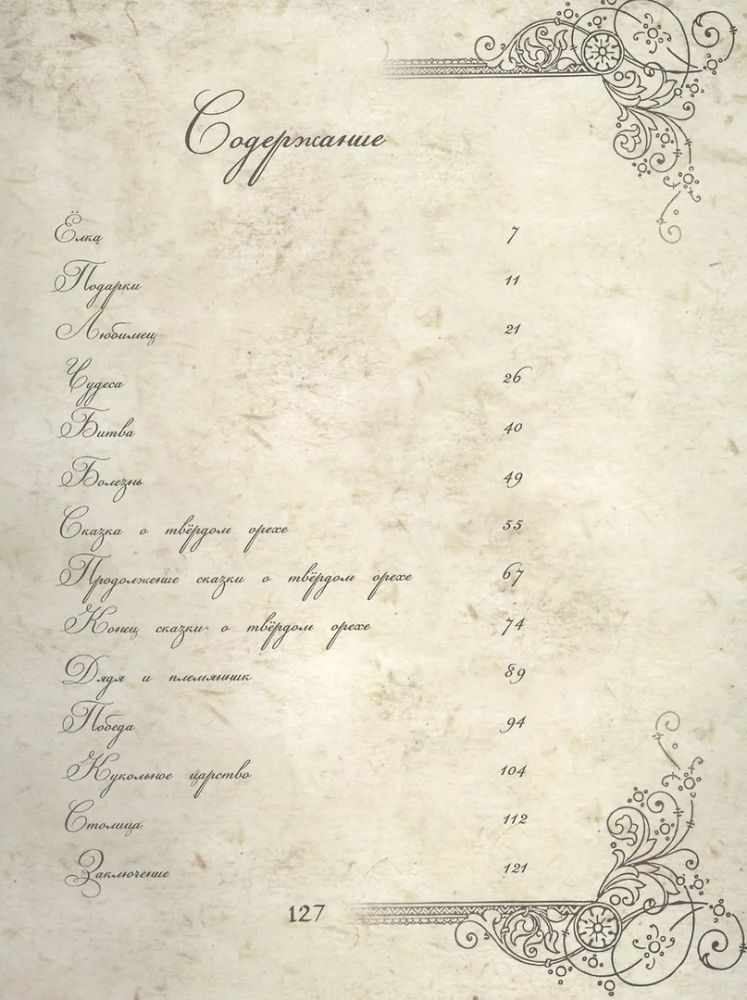 Содержание
Ёлка 7
Подарки 11
Любимец 21
Чудеса 26
Битва 40
Болезнь 49
Сказка о твёрдом орехе 55
Продолжение сказки о твёрдом орехе 67
Конец сказки о твёрдом орехе 74
Дядя и племянник 89
Победа 94
Кукольное царство 104
Столица 112
Заключение 121
127